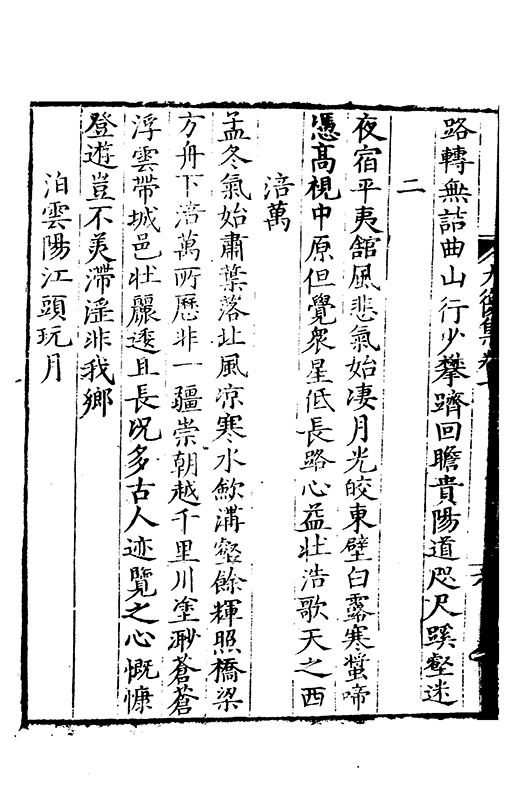 路轉無詰曲山行少攀躋回瞻貴陽道咫尺蹊壑迷
二
夜宿平夷舘風悲氣始淒月光皎東壁白露寒螿啼
憑高視中原但覺衆星低長路心益壯浩歌天之西
涪萬
孟冬氣始肅葉落北風凉寒水歛溝壑餘輝照橋梁
方舟下涪萬所歷非一疆崇朝越千里川塗渺蒼蒼
浮雲帶城邑壯麗逶且長况多古人迹覽之心慨慷
登遊豈不美滯淫非我鄉
泊雲陽江頭玩月